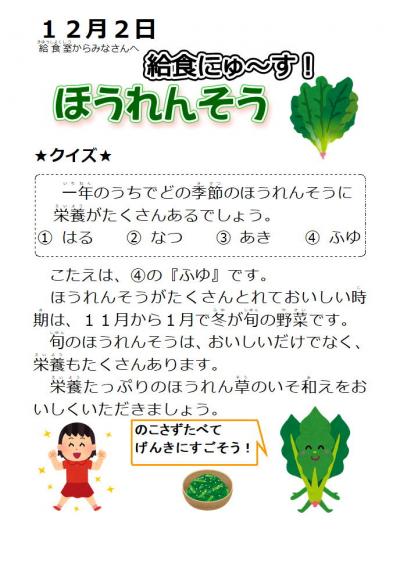 １２月２日
給食室からみなさんへ
給食にゅ～す！
ほうれんそう
★クイズ★
一年のうちでどの季節のほうれんそうに
栄養がたくさんあるでしょう。
① はる　② なつ　③ あき　④ ふゆ
こたえは、④の『ふゆ』です。
ほうれんそうがたくさんとれておいしい時
期は、１１月から１月で冬が旬の野菜です。
旬のほうれんそうは、おいしいだけでなく、
栄養もたくさんあります。
栄養たっぷりのほうれん草のいそ和えをお
いしくいただきましょう。
のこさずたべて
げんきにすごそう！